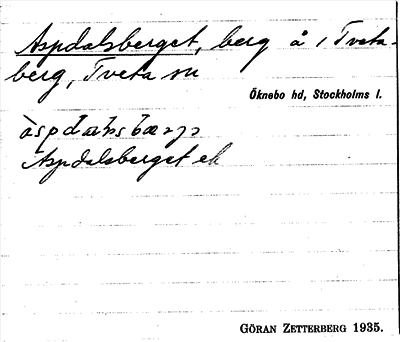 Aspdalsberget, berg å 1 Tveta-
berg, Tveta sn
Öknebo hd, Stockholms l.
Aspdalsberget ek
GÖRAN ZETTERBERG 1935.